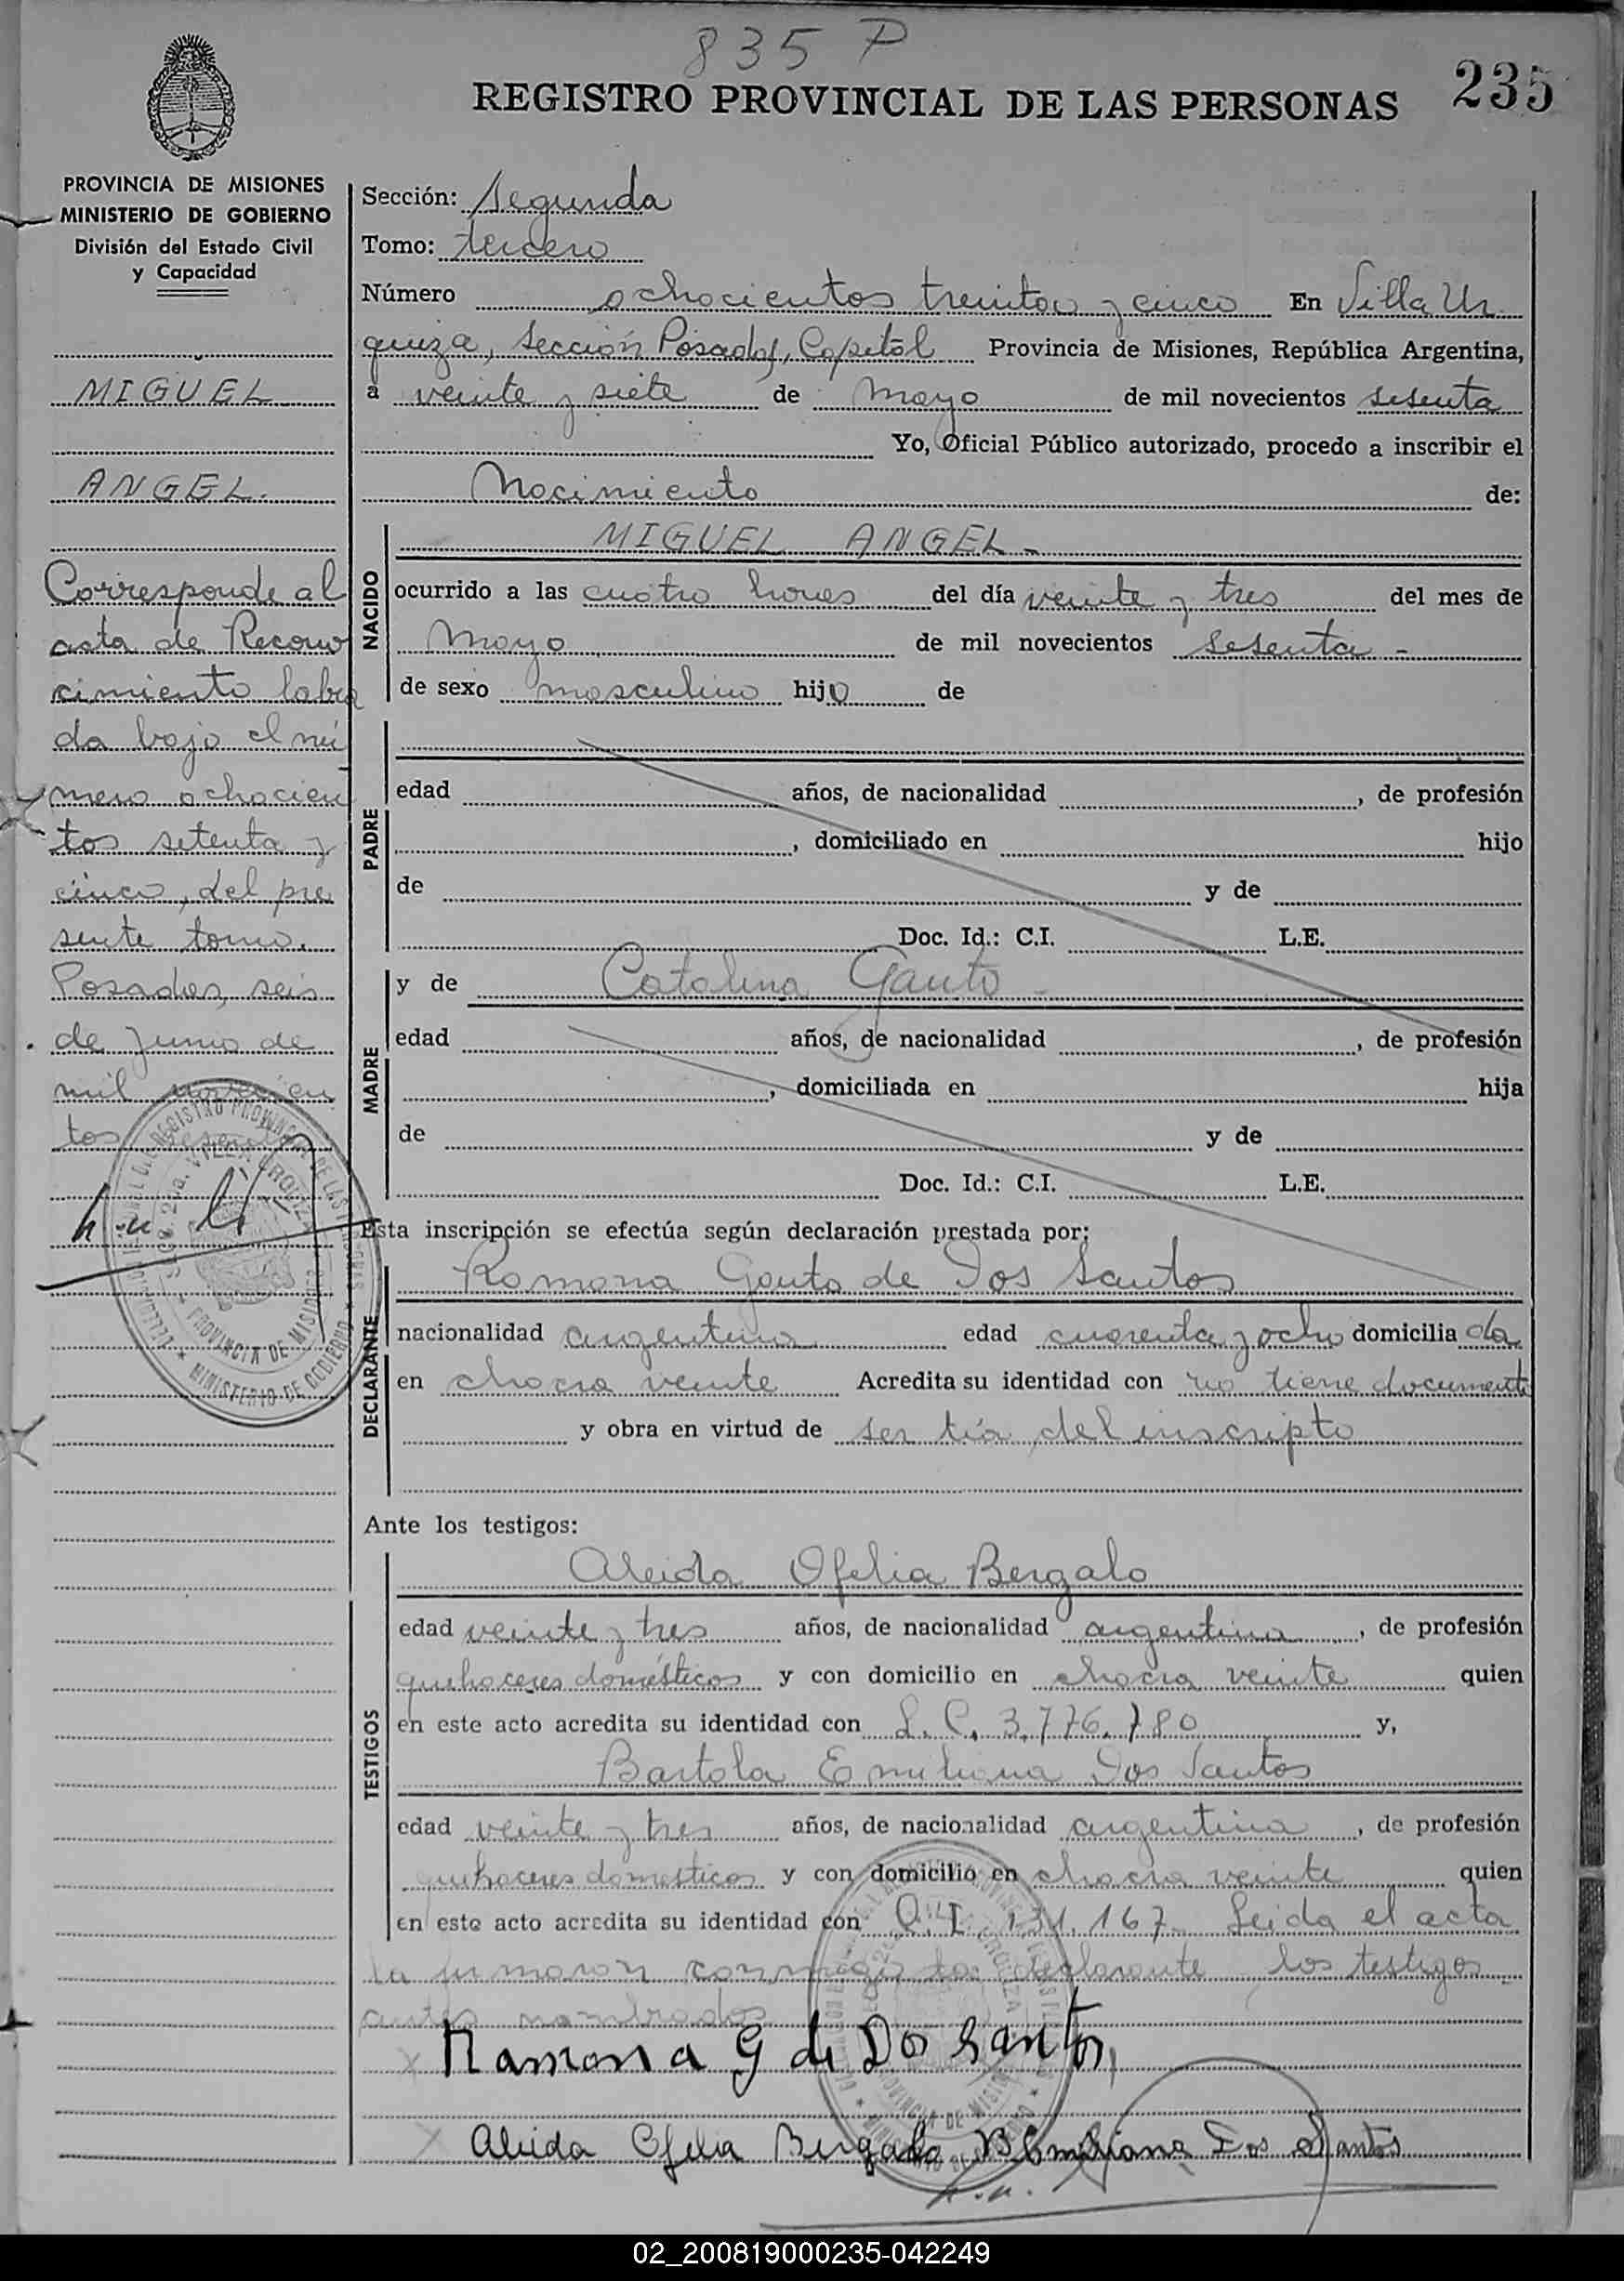 835 P
REGISTRO PROVINCIAL DE LAS PERSONAS
235
PROVINCIA DE MISIONES
MINISTERIO DE GOBIERNO
División del Estado Civil
y Capacidad
MIGUEL
ANGEL.
Corresponde al
acta de Recono
cimiento labra
da bajo el nú
mero ochocien
tos setenta y
cinco, del pre
sente tomo.
Posadas, seis
de Junio de
mil novecien
tos sesenta
Sección: Segunda
Tomo: tercero
Número ochocientos treinta y cinco En Villa Ur
quiza, Sección Posadas, Capital Provincia de Misiones, República Argentina,
a veinte y siete de Mayo de mil novecientos sesenta
Yo, Oficial Público autorizado, procedo a inscribir el
Nacimiento de:
NACIDO
MIGUEL ANGEL -
ocurrido a las cuatro horas del día veinte y tres del mes de
Mayo de mil novecientos sesenta -
de sexo masculino hijo de
PADRE
edad años, de nacionalidad , de profesión
, domiciliado en hijo
de y de
Doc. Id.: C.I. L.E.
MADRE
y de Catalina Gauto -
edad años, de nacionalidad , de profesión
, domiciliada en hija
de y de
Doc. Id.: C.I. L.E.
Esta inscripción se efectúa según declaración prestada por:
DECLARANTE
Ramona Gauto de Dos Santos
nacionalidad argentina edad cuarenta y ocho domicilia da
en chacra veinte Acredita su identidad con no tiene documento
y obra en virtud de ser tía del inscripto
Ante los testigos:
TESTIGOS
Aleida Ofelia Bergalo
edad veinte y tres años, de nacionalidad argentina , de profesión
quehaceres domésticos y con domicilio en chacra veinte quien
en este acto acredita su identidad con L.C. 3.776.780 y,
Bartola Emiliana Dos Santos
edad veinte y tres años, de nacionalidad argentina , de profesión
quehaceres domésticos y con domicilio en chacra veinte quien
en este acto acredita su identidad con C.I. 131.167 - Leida el acta
la firmaron conmigo la declarante y los testigos
antes nombrados
Ramona G de Dos Santos
Aleida Ofelia Bergalo B Emiliana Dos Santos
02_200819000235-042249